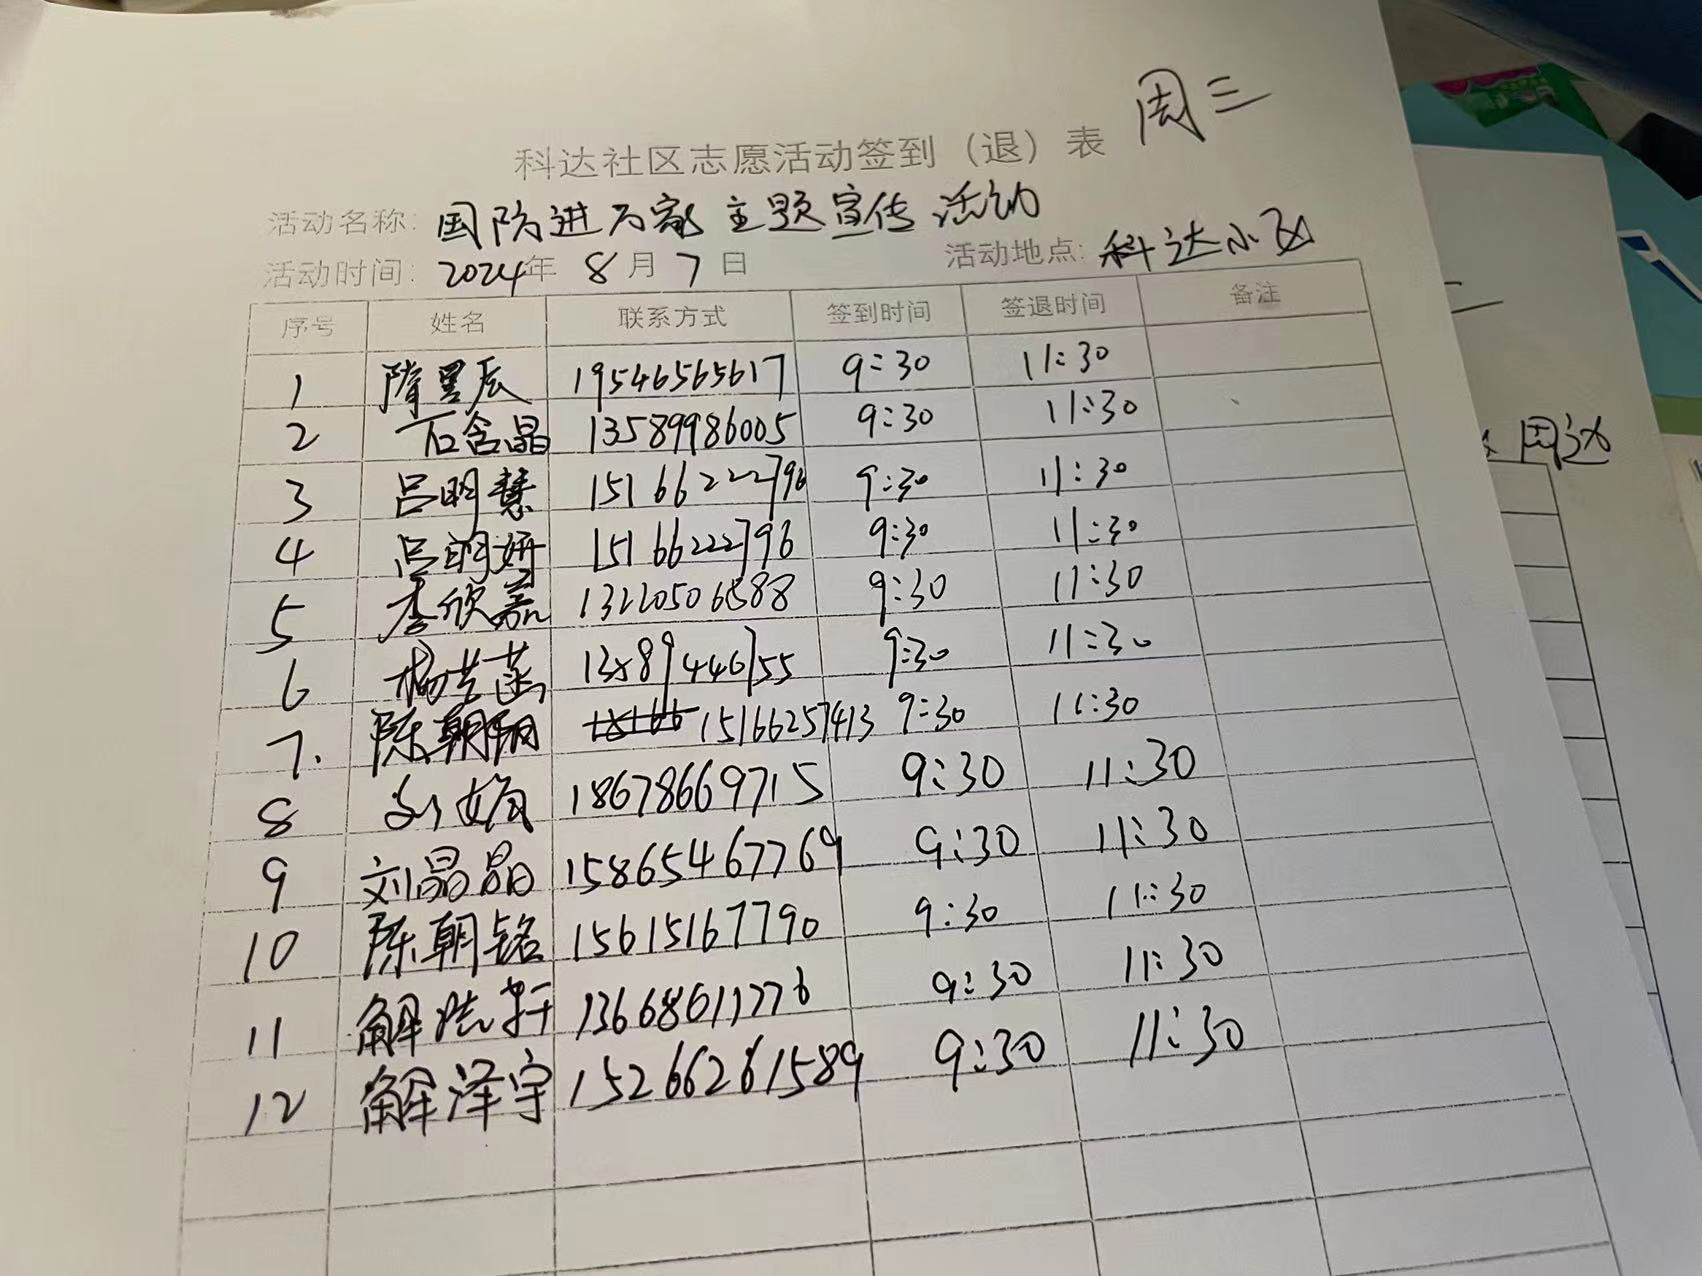 周三
科达社区志愿活动签到（退）表
活动名称: 国防进万家主题宣传活动
活动时间: 2024年 8月 7日 活动地点: 科达小区
序号 姓名 联系方式 签到时间 签退时间 备注
1 隋星辰 19546565617 9:30 11:30
2 石含晶 13589986005 9:30 11:30
3 吕明慧 15166222796 9:30 11:30
4 吕明妍 15166222796 9:30 11:30
5 李欣嘉 9:30 11:30
6 杨艺菡 13589446755 9:30 11:30
7. 陈朝 15166257413 9:30 11:30
8 刘娟 18678669715 9:30 11:30
9 刘晶晶 15865467769 9:30 11:30
10 陈朝铭 15615167790 9:30 11:30
11 解 轩 13668611776 9:30 11:30
12 解泽宇 15266261589 9:30 11:30
周达